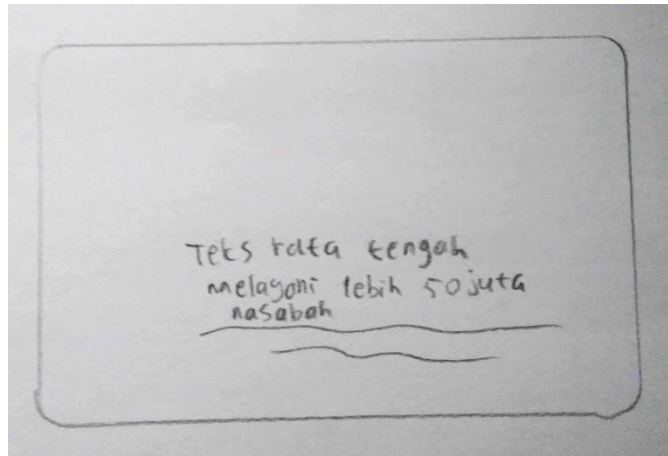 Teks rata tengah
melayani lebih 50 juta
nasabah